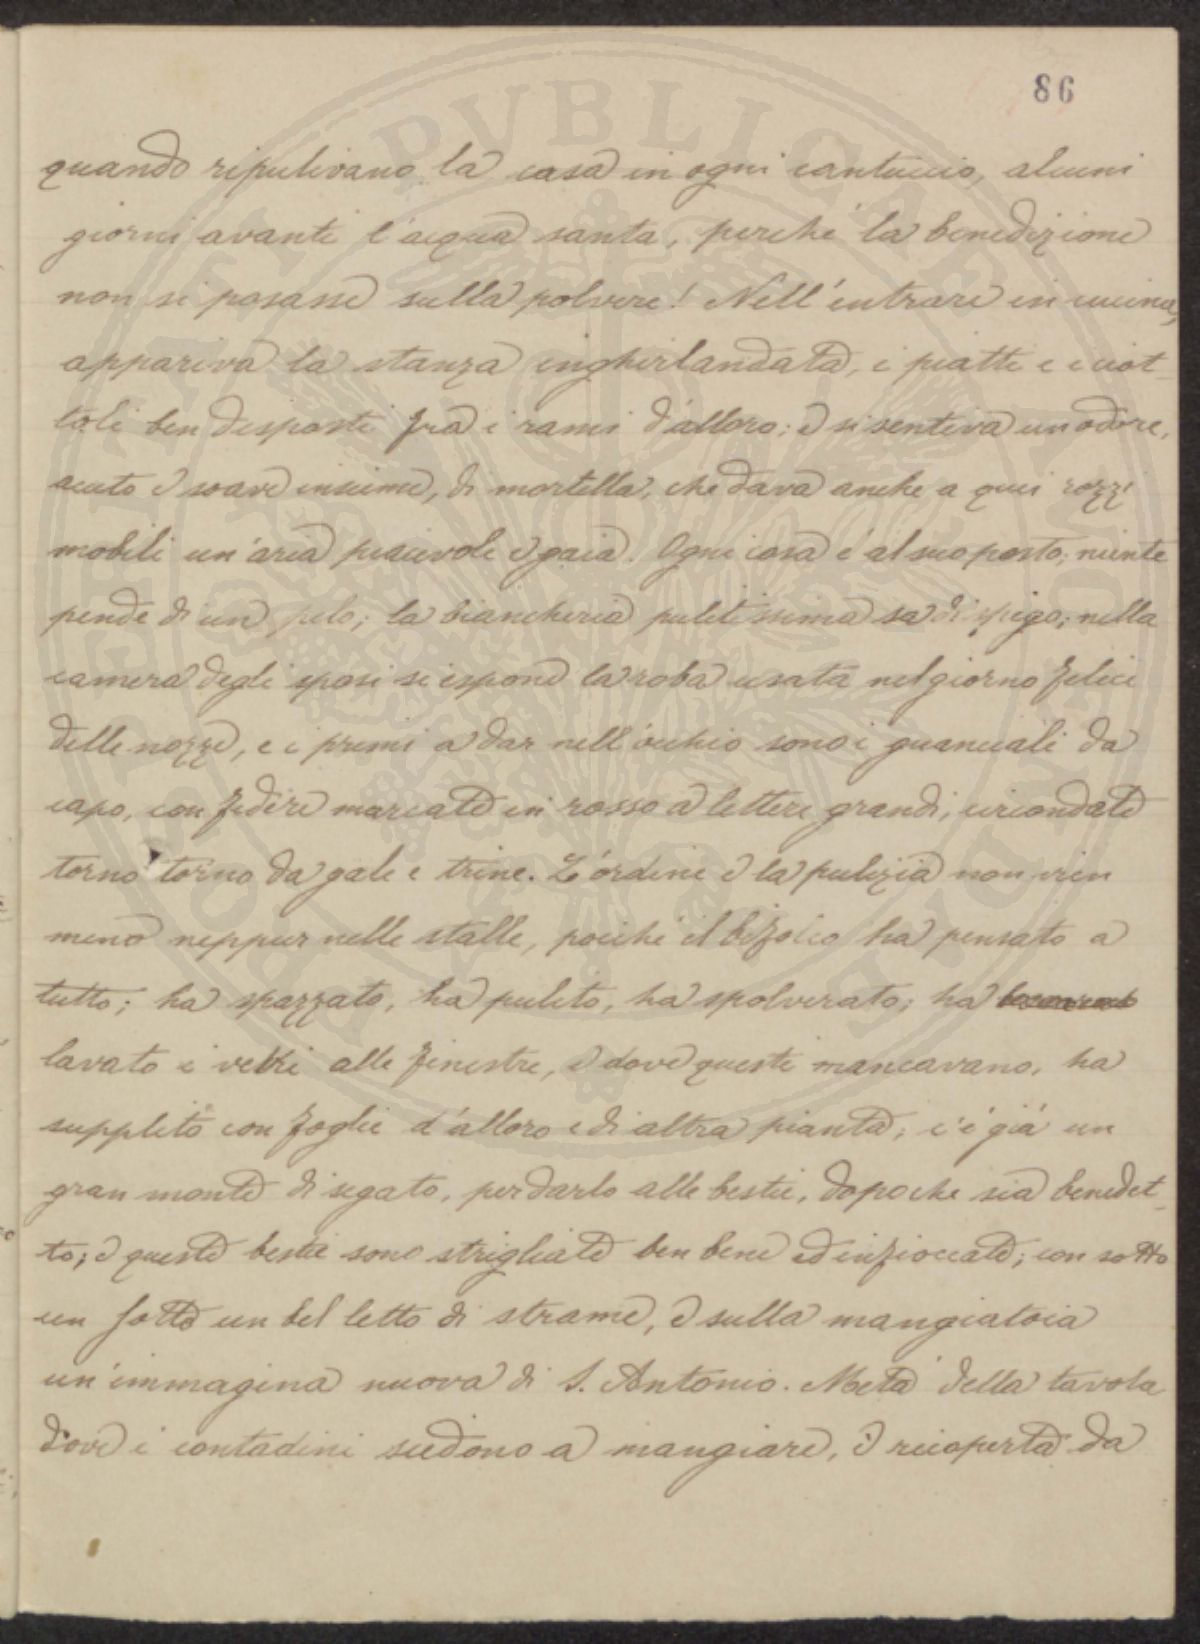 86
quando ripulivano la casa in ogni cantuccio, alcuni
giorni avanti l'acqua santa, perchè la benedizione
non si posasse sulla polvere! Nell'entrare in cucina,
appariva la stanza inghirlandata, i piatti e i ciot-
toli ben disposti fra i rami d'alloro; e si sentiva un odore,
acuto e soave insieme, di mortella, che dava anche a quei rozzi
mobili un'aria piacevole e gaia. Ogni cosa è al suo posto; niente
pende di un pelo; la biancheria pulitissima sa di spigo; nella
camera degli sposi si espone la roba usata nel giorno felice
delle nozze, e i primi a dar nell'occhio sono i guanciali da
capo, con federe marcate in rosso a lettere grandi, circondate
torno torno da gale e trine. L'ordine e la pulizia non vien
meno neppur nelle stalle, poichè il bifolco ha pensato a
tutto; ha spazzato, ha pulito, ha spolverato; ha
lavato i vetri alle finestre, e dove questi mancavano, ha
supplito con foglie d'alloro e di altra pianta; c'è già un
gran monte di segato, per darlo alle bestie, dopochè sia benedet-
to; e queste bestie sono strigliate ben bene ed infioccate; con sotto
un fotte un bel letto di strame, e sulla mangiatoia
un'immagina nuova di S. Antonio. Metà della tavola
dove i contadini siedono a mangiare, è ricoperta da
PUBLICAE